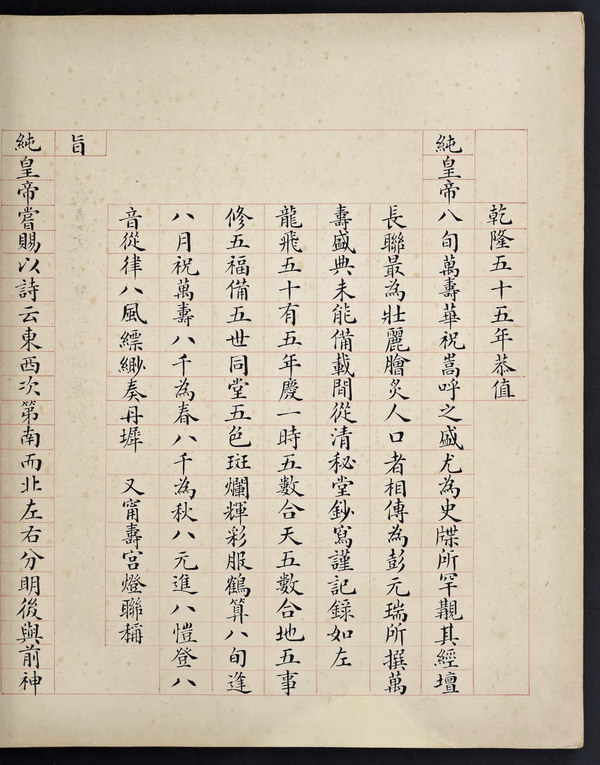 乾隆五十五年恭值
純皇帝八旬萬壽華祝嵩呼之盛尤為史牒所罕觏其經壇
長聯最為壯麗膾炙人口者相傳為彭元瑞所撰萬
壽盛典未能備載間從清秘堂鈔寫謹記錄如左
龍飛五十有五年慶一時五數合天五數合地五事
修五福備五世同堂五色斑斕輝彩服鶴算八旬逢
八月祝萬壽八千為春八千為秋八元進八愷登八
音從律八風縹緲奏丹墀 又甯壽宮燈聯稱
旨
純皇帝嘗賜以詩云東西次第南而北左右分明後與前神